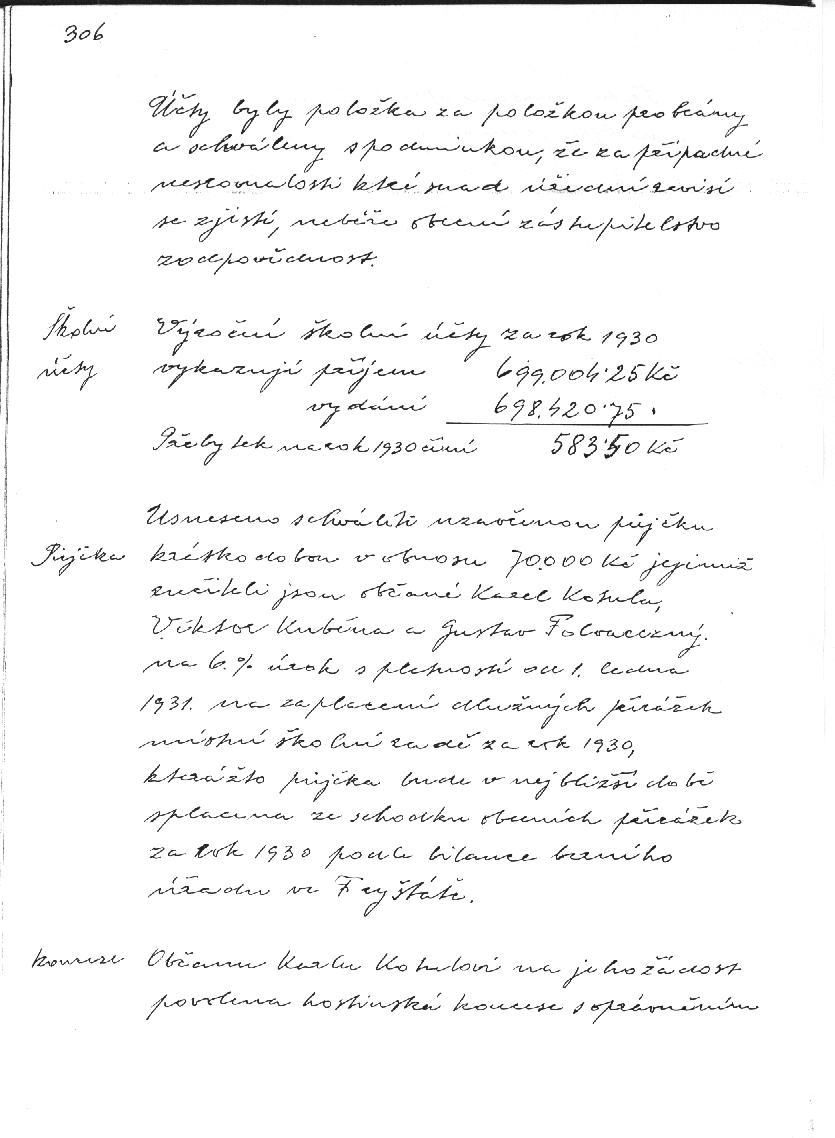 306
Účty byly položka za položkou probrány
a schváleny s podmínkou, že za případné
nesrovnalosti které snad úřední revisí
se zjistí, neběře obecní zástupitelstvo
zodpovědnost.
Školní Výroční školní účty za rok 1930
účty vykazují příjem 699.004·25 Kč
vydání 698.420·75 ·
Přebytek na rok 1930 činí 583·50 Kč
Usneseno schváliti uzavřenou půjčku
Půjčka krátkodobou v obnosu 70.000 Kč jejímiž
ručiteli jsou občané Karel Kotula,
Viktor Kuběna a Gustav Folvarczný.
na 6.% úrok s platností od 1. ledna
1931. na zaplacení dlužných přirážek
místní školní radě za rok 1930,
kterážto půjčka bude v nejbližší době
splacena ze schodku obecních přirážek
za rok 1930 podle bilance berního
úřadu ve Fryštátě.
koncese Občanu Karlu Kotulovi na jeho žádost
povolena hostinská koncese s oprávněním